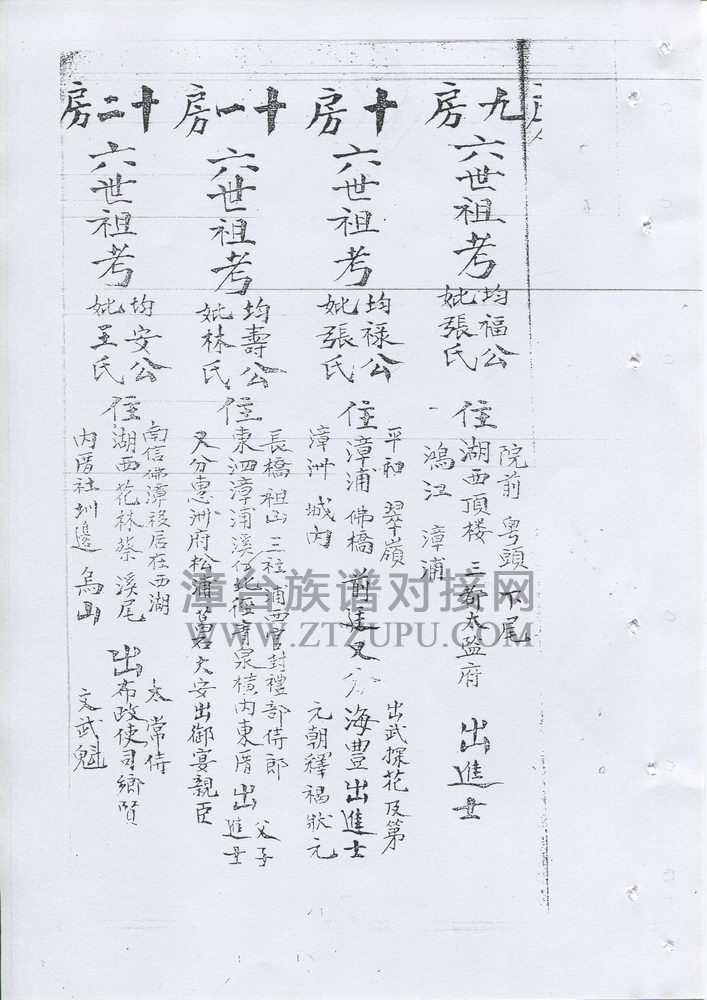 九房
六世祖考
均福公
妣張氏
院前 粵頭 下尾
住湖西頂楼 三爺太監府 出進士
鴻江 漳浦
十房
六世祖考
均禄公
妣張氏
平和 翠嶺 出武探花及第
住漳浦佛橋前廷又分海豊出進士
漳洲城内 元朝釋褐狀元
十一房
六世祖考
均壽公
妣林氏
長橋祖山三社浦西官封禮部侍郎 父子
住東泗漳浦溪 北徑 泉横内東厝出進士
又分惠洲府松浦 大安出御宴親臣
十二房
六世祖考
均安公
妣王氏
南信佛潭後居在西湖 太常侍
住湖西花林蔡溪尾 出布政使司鄉賢
内厝社圳邊 烏山 文武魁
漳台族谱对接网
WWW.ZTZUPU.COM